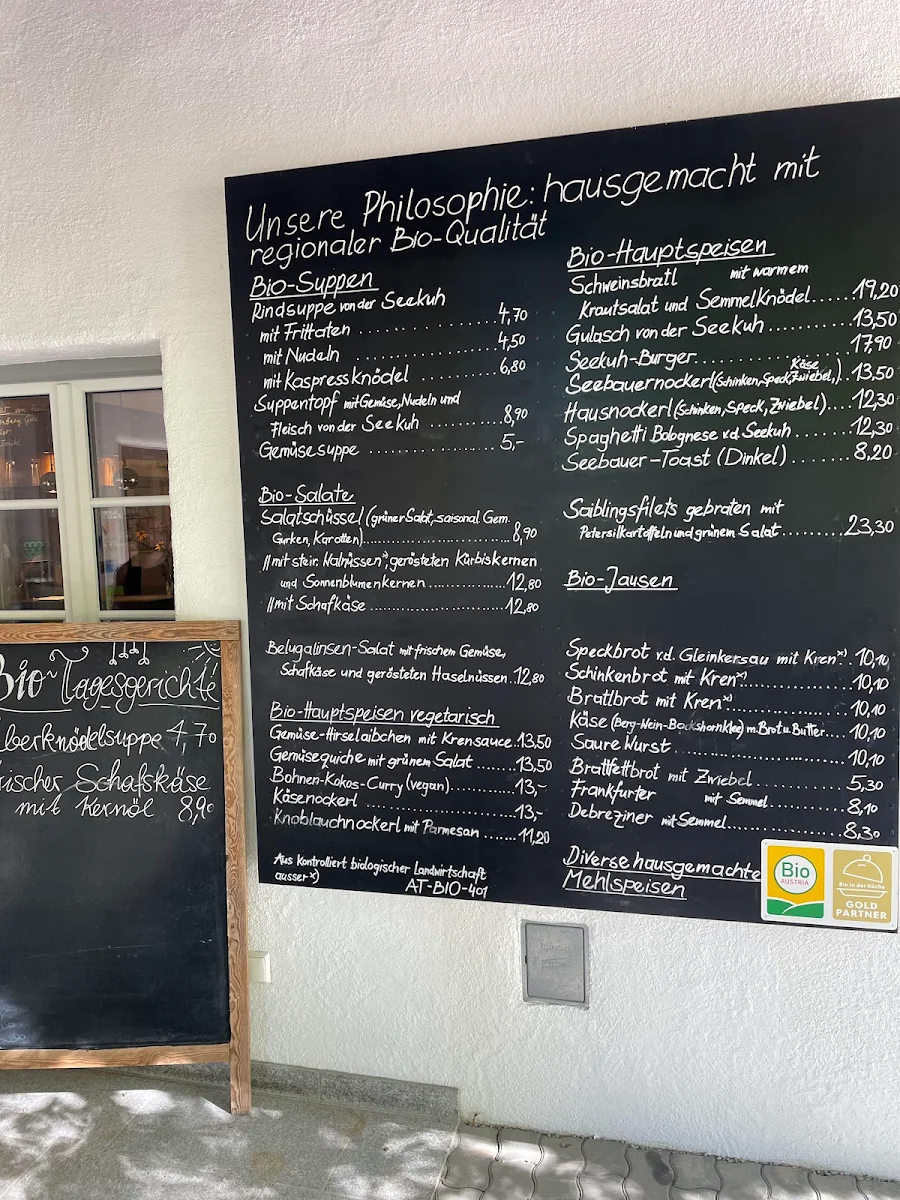 Unsere Philosophie: hausgemacht mit
regionaler Bio-Qualität
Bio-Suppen
Rindsuppe von der Seekuh
mit Frittaten .......... 4,70
mit Nudeln .......... 4,50
mit Kaspressknödel .......... 6,80
Suppentopf mit Gemüse, Nudeln und
Fleisch von der Seekuh .......... 8,90
Gemüsesuppe .......... 5,-
Bio-Salate
Salatschüssel (grüner Salat, saisonal Gem.
Gurken, Karotten).......... 8,90
// mit steir. Walnüssen*), gerösteten Kürbiskernen
und Sonnenblumenkernen .......... 12,80
// mit Schafkäse .......... 12,80
Belugalinsen-Salat mit frischem Gemüse,
Schafkäse und gerösteten Haselnüssen .. 12,80
Bio-Hauptspeisen vegetarisch
Gemüse-Hirselaibchen mit Krensauce .. 13,50
Gemüsequiche mit grünem Salat .......... 13,50
Bohnen-Kokos-Curry (vegan) .......... 13,-
Käsenockerl .......... 13,-
Knoblauchnockerl mit Parmesan .......... 11,20
Aus Kontrolliert biologischer Landwirtschaft
ausser x)
AT-BIO-401
Bio-Hauptspeisen
Schweinsbratl mit warmem
Krautsalat und Semmelknödel...... 19,20
Gulasch von der Seekuh .......... 13,50
Seekuh-Burger.......... 17,90
Seebauernockerl (Schinken, Speck, Zwiebel, Käse) .. 13,50
Hausnockerl (Schinken, Speck, Zwiebel).... 12,30
Spaghetti Bolognese v.d. Seekuh .......... 12,30
Seebauer-Toast (Dinkel) .......... 8,20
Saiblingsfilets gebraten mit
Petersilkartoffeln und grünem Salat.......... 23,30
Bio-Jausen
Speckbrot v.d. Gleinkersau mit Kren x) . 10,10
Schinkenbrot mit Kren x) .......... 10,10
Bratlbrot mit Kren x) .......... 10,10
Käse (Berg-Wein-Bockshornklee) m. Brot u. Butter.... 10,10
Saure Wurst .......... 10,10
Bratlfettbrot mit Zwiebel .......... 5,30
Frankfurter mit Semmel .......... 8,10
Debreziner mit Semmel.......... 8,30
Diverse hausgemachte
Mehlspeisen
Bio
AUSTRIA
Bio in der Küche
GOLD
PARTNER
Bio~Tagesgerichte
berknödelsuppe 4,70
rischer Schafskäse
mit Kernöl 8,90